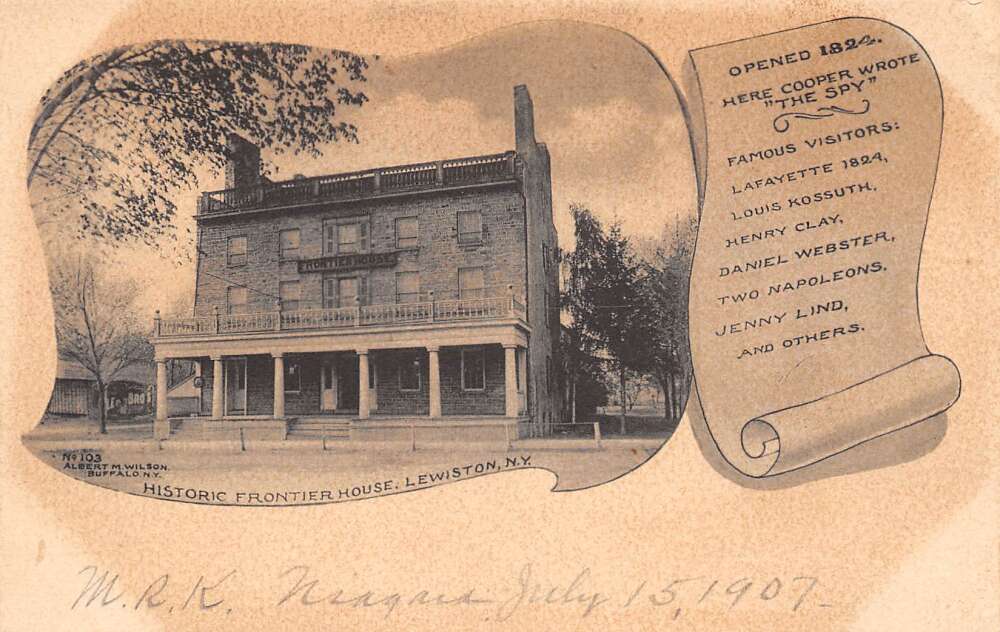 FRONTIER HOUSE
Bros
No 103
ALBERT M. WILSON.
BUFFALO, N.Y.
HISTORIC FRONTIER HOUSE. LEWISTON, N.Y.
OPENED 1824.
HERE COOPER WROTE
"THE SPY"
FAMOUS VISITORS:
LAFAYETTE 1824,
LOUIS KOSSUTH,
HENRY CLAY,
DANIEL WEBSTER,
TWO NAPOLEONS,
JENNY LIND,
AND OTHERS.
M.R.K. Niagara July 15, 1907